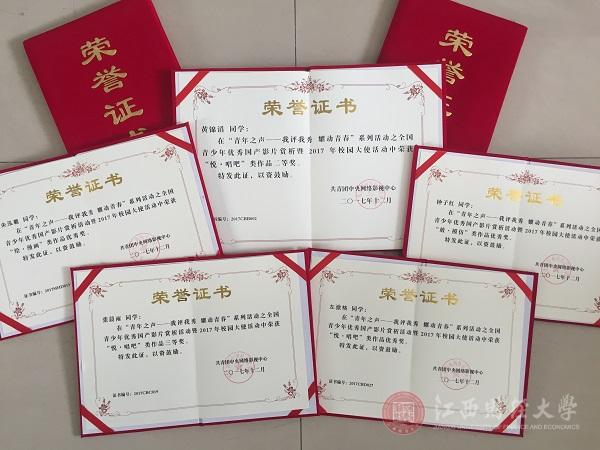 荣誉证书
荣誉证
荣誉证书
黄锦滔 同学：
在“青年之声——我评我秀 耀动青春”系列活动之全国
青少年优秀国产影片赏析暨 2017 年校园大使活动中荣获
“悦·唱吧”类作品二等奖。
特发此证，以资鼓励。
共青团中央网络影视中心
二〇一七年十二月
荣誉证书
同学：
在“青年之声——我评我秀 耀动青春”系列活动之全国
青少年优秀国产影片赏析活动暨 2017 年校园大使活动中荣获
“绘·插画”类作品优秀奖。
特发此证，以资鼓励。
共青团中央网络影视中心
二〇一七年十二月
荣誉证书
钟子红 同学：
在“青年之声——我评我秀 耀动青春”系列活动之全国
青少年优秀国产影片赏析活动暨 2017 年校园大使活动中荣获
类作品优秀奖。
特发此证，以资鼓励。
共青团中央网络影视中心
二〇一七年十二月
荣誉证书
张晨雨 同学：
在“青年之声——我评我秀 耀动青春”系列活动之全国
青少年优秀国产影片赏析活动暨 2017 年校园大使活动中荣获
“悦·唱吧”类作品三等奖。
特发此证，以资鼓励。
共青团中央网络影视中心
二〇一七年十二月
证书编号：2017CBC019
荣誉证书
同学：
在“青年之声——我评我秀 耀动青春”系列活动之全国
青少年优秀国产影片赏析活动暨 2017 年校园大使活动中荣获
“悦·唱吧”类作品优秀奖。
特发此证，以资鼓励。
共青团中央网络影视中心
二〇一七年十二月
证书编号：2017CBD027
江西财经大学
JIANGXI UNIVERSITY OF FINANCE AND ECONOMICS